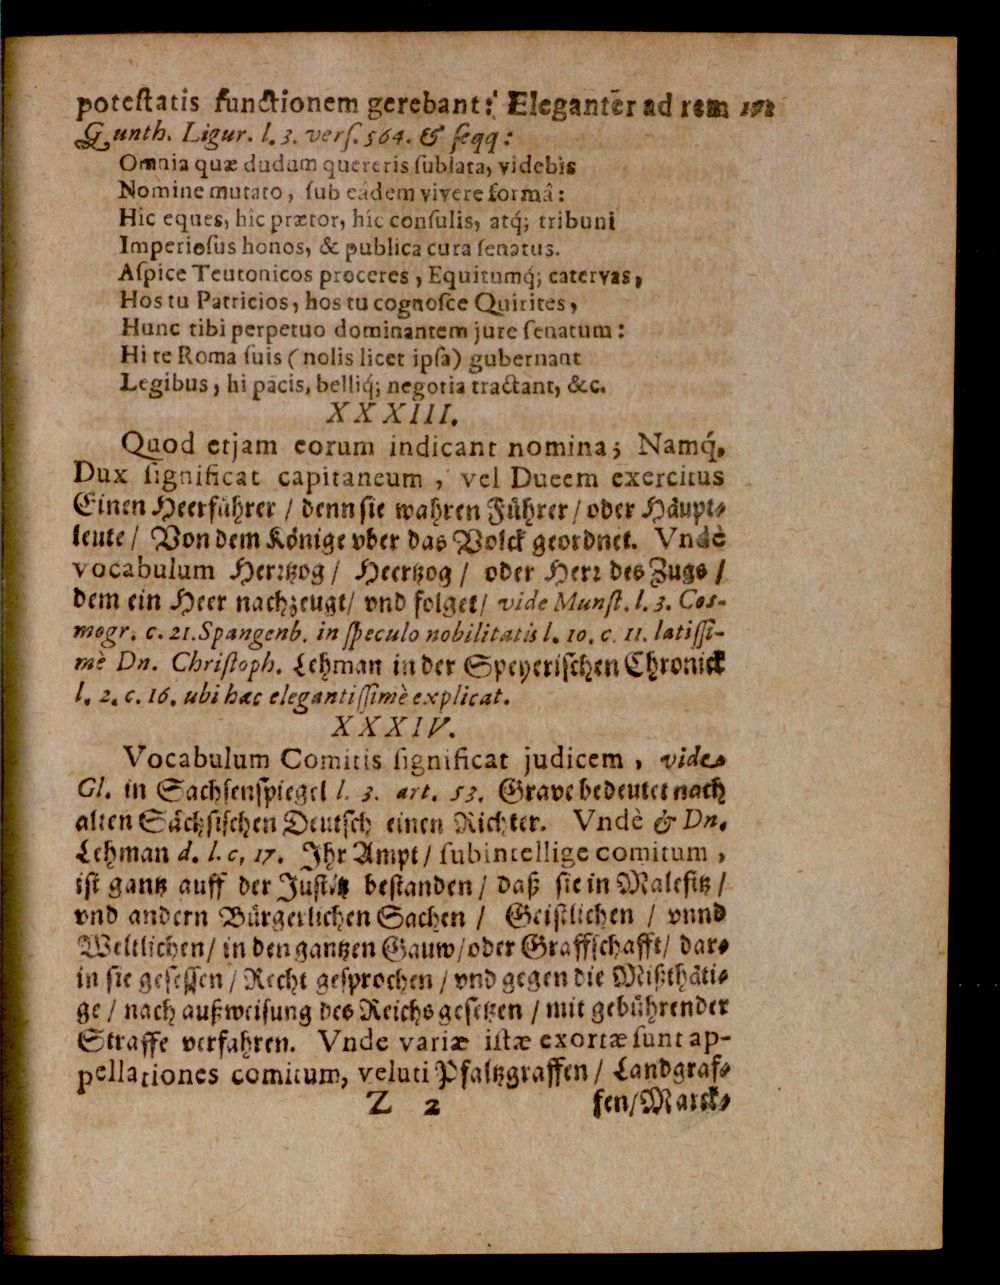 poteſtatis functionem gerebant: Eleganter ad rem
Gunth. Ligur. l. 3. verſ. 564. & ſeqq:
Omnia quæ dudum quereris ſublata, videbis
Nomine mutato, ſub eâdem vivere formâ:
Hic eques, hic prætor, hic conſulis, atq́; tribuni
Imperioſus honos, & publica cura ſenatus.
Aſpice Teutonicos proceres, Equitumq́; catervas,
Hos tu Patricios, hos tu cognoſce Quirites,
Hunc tibi perpetuo dominantem jure ſenatum:
Hi te Roma ſuis (nolis licet ipſa) gubernant
Legibus, hi pacis, belliq́; negotia tractant, &c.
XXXIII.
Quod etjam eorum indicant nomina; Namq́,
Dux ſignificat capitaneum, vel Ducem exercitus
Einen Heerführer / denn ſie wahren Führer / oder Häupt-
leute / Von dem Könige vber das Volck geordnet. Vndè
vocabulum Hertzog / Heertzog / oder Herr des Zugs /
dem ein Heer nachzeugt / vnd folget / vide Munſt. l. 3. Coſ-
mogr. c. 21. Spangenb. in ſpeculo nobilitatis l. 10. c. 11. latiſſi-
mè Dn. Chriſtoph. Lehman in der Speyeriſchen Chronick
l. 2. c. 16. ubi hæc elegantiſſimè explicat.
XXXIV.
Vocabulum Comitis ſignificat judicem, vide
Gl. in Sachſenſpiegel l. 3. art. 53. Grave bedeutet nach
alten Sächſiſchen Deutſch einen Richter. Vndè & Dn.
Lehman d. l. c, 17. Ihr Ampt / ſubintellige comitum,
iſt gantz auff der Juſtitz beſtanden / daß ſie in Malefitz /
vnd andern Bürgerlichen Sachen / Geiſtlichen / vnnd
Weltlichen / in den gantzen Gauw / oder Graffſchafft / dar-
in ſie geſeſſen / Recht geſprochen / vnd gegen die Mißthäti-
ge / nach außweiſung des Reichs geſetzen / mit gebührender
Straffe verfahren. Vnde variæ iſtæ exortæ ſunt ap-
pellationes comitum, veluti Pfaltzgraffen / Landgraf-
Z 2 fen / Marck-